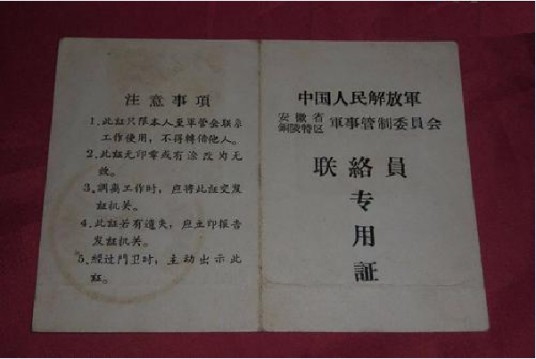 注意事項
1.此証只限本人至軍管会联系
工作使用，不得轉借他人。
2.此証无印章或有涂改为无
效。
3.調离工作时，应将此証交发
証机关。
4.此証若有遗失，应立即报告
发証机关。
5.经过門卫时，主动出示此
証。
中国人民解放軍
安徽省
銅陵特区 軍事管制委員会
联絡員
专
用
証